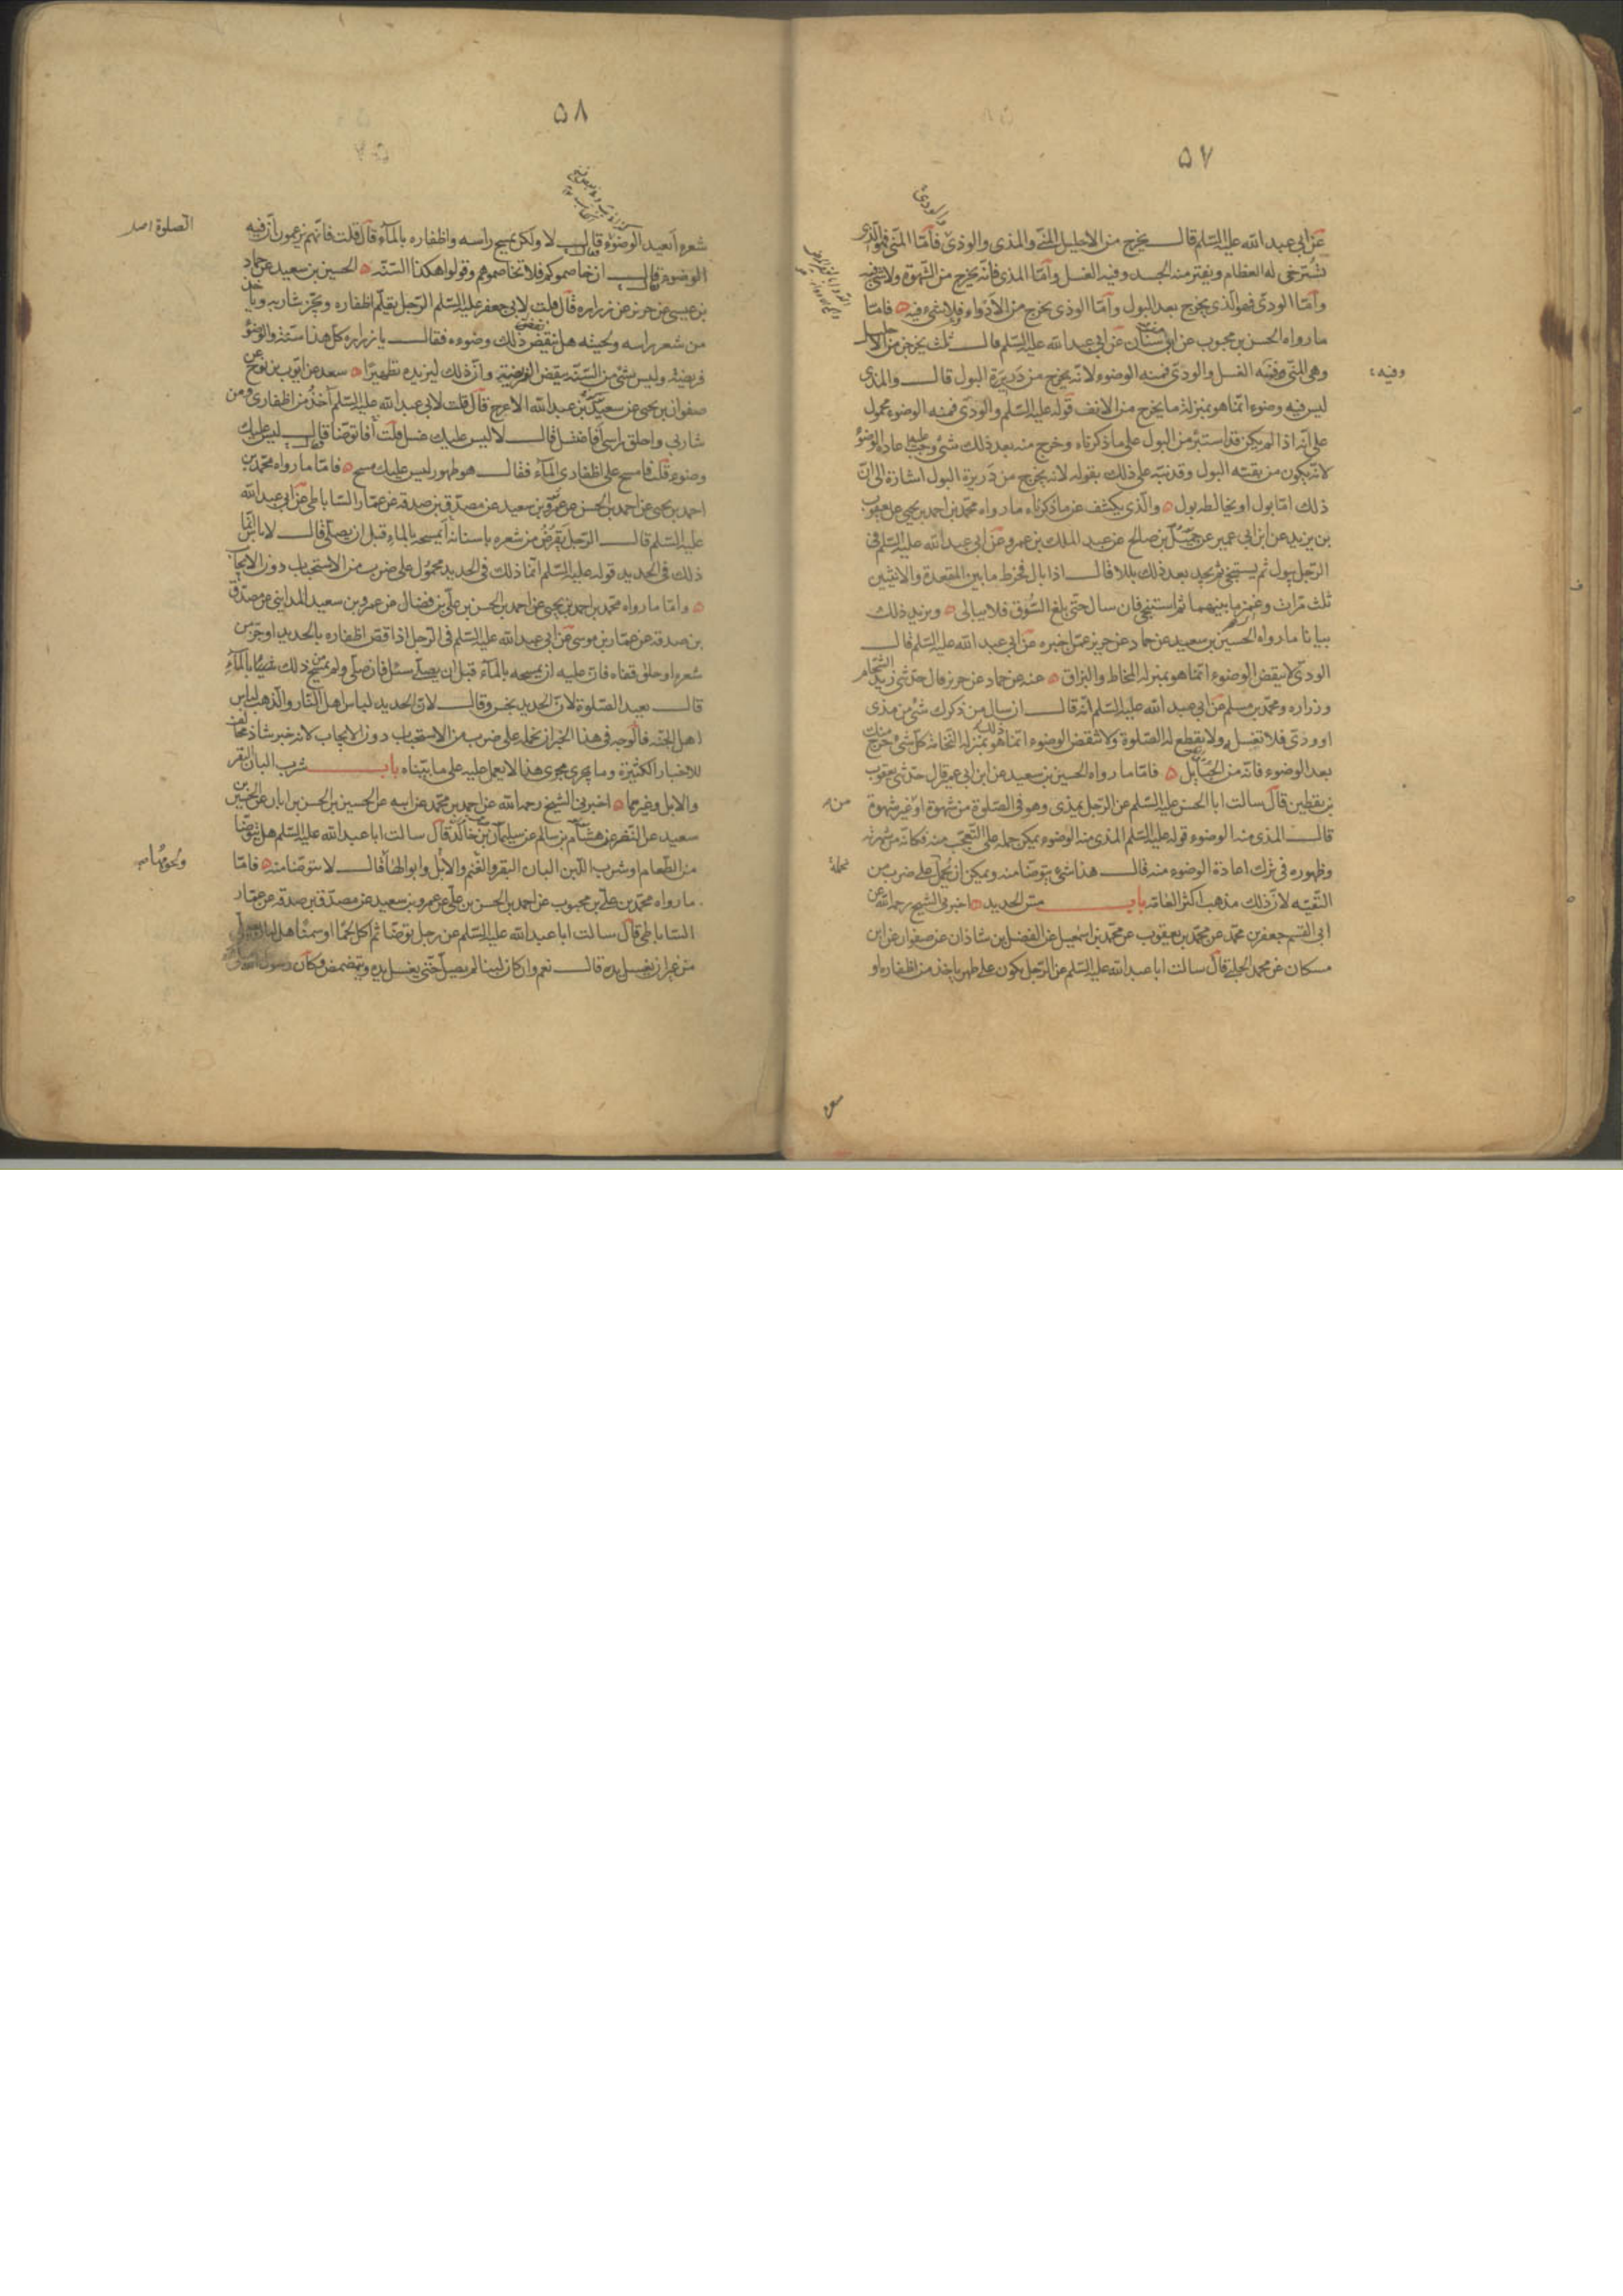 ۵۷
والودی
عن ابی عبد الله علیه السلم قال یخرج من الاحلیل المنی والمذی والوذی فاما المنی فهو الذی
تسترخی له العظام ویفتر منه الجسد وفیه الغسل واما المذی فانه یخرج من الشهوة ولا شیء فیه
واما الودی فهو الذی یخرج بعد البول واما الوذی یخرج من الادواء ولا شیء فیه ه فاما
ما رواه الحسن بن محبوب عن ابن سنان عن ابی عبد الله علیه السلم قال ثلث یخرجن من الاحلیل
وهی المنی وفیه الغسل والودی فمنه الوضوء لانه یخرج من دریرة البول قال والمذی
وفیه
لیس فیه وضوء انما هو بمنزلة ما یخرج من الانف قوله علیه السلم والودی فمنه الوضوء محمول
علی انه اذا لم یکن قد استبرء من البول علی ما ذکرناه وخرج منه بعد ذلک شیء وجب علیه اعادة الوضوء
لانه یکون من بقیة البول وقد نبه علی ذلک بقوله لانه یخرج من دریرة البول اشارة الی ان
ذلک اما بول او یخالطه بول ه والذی یکشف عن ما ذکرناه ما رواه محمد بن احمد بن یحیی عن یعقوب
بن یزید عن ابن ابی عمیر عن جمیل بن صالح عن عبد الملک بن عمرو عن ابی عبد الله علیه السلم فی
الرجل یبول ثم یستنجی ثم یجد بعد ذلک بللا قال اذا بال فخرط ما بین المقعدة والانثیین
ثلث مرات وغمز ما بینهما ثم استنجی فان سال حتی بلغ السوق فلا یبالی ه ویزید ذلک
بیانا ما رواه الحسین بن سعید عن حماد عن حریز عمن اخبره عن ابی عبد الله علیه السلم قال
الودی لا ینقض الوضوء انما هو بمنزلة المخاط والبزاق ه عنه عن حماد عن حریز قال حدثنی زید الشحام
وزراره ومحمد بن مسلم عن ابی عبد الله علیه السلم انه قال ان سال من ذکرک شیء من مذی
او ودی فلا تغسله ولا یقطع له الصلوة ولا تنقض الوضوء انما ذلک هو بمنزلة النخامة کل شیء خرج منک
بعد الوضوء فانه من الحبایل ه فاما ما رواه الحسین بن سعید عن ابن ابی عمیر قال حدثنی یعقوب
بن یقطین قال سالت ابا الحسن علیه السلم عن الرجل یمذی وهو فی الصلوة من شهوة او غیر شهوة
منه
قال المذی منه الوضوء قوله علیه السلم المذی منه الوضوء یمکن حمله علی التعجب منه فکانه من شهرته
وظهوره فی ترک اعادة الوضوء منه قال هذا شیء یتوضا منه ویمکن ان یحمل علی ضرب من
نحمله
التقیه لان ذلک مذهب اکثر العامه باب مس الحدید ه اخبرنی الشیخ رحمه الله عن
ابی القسم جعفر بن محمد عن محمد بن یعقوب عن محمد بن اسمعیل عن الفضل بن شاذان عن صفوان عن ابن
مسکان عن محمد الحلبی قال سالت ابا عبد الله علیه السلم عن الرجل یکون علی طهر یاخذ من اظفاره او
۵۸
شعره ایعید الوضوء فقال لا ولکن یمسح راسه واظفاره بالماء قال قلت فانهم یزعمون ان فیه
الصلوة اصل
الوضوء فقال ان خاصموکم فلا تخاصموهم وقولوا هکذا السنه ه الحسین بن سعید عن حماد
بن عیسی عن حریز عن زراره قال قلت لابی جعفر علیه السلم الرجل یقلم اظفاره ویجز شاربه ویاخذ
من شعر راسه ولحیته هل ینقض ذلک وضوءه فقال یا زراره کل هذا سنة والوضوء
فریضه ولیس شیء من السنه ینقض الفریضه وان ذلک لیزیده تطهیرا ه سعد عن ایوب بن نوح عن
صفوان بن یحیی عن سعید بن عبد الله الاعرج قال قلت لابی عبد الله علیه السلم آخذ من اظفاری ومن
شاربی واحلق راسی أفاغتسل قال لا لیس علیک غسل قلت أفاتوضأ قال لیس علیک
وضوء قلت فامسح علی اظفاری الماء فقال هو طهور لیس علیک مسح ه فاما ما رواه محمد بن
احمد بن یحیی عن احمد بن الحسن عن عمرو بن سعید عن مصدق بن صدقه عن عمار الساباطی عن ابی عبد الله
علیه السلم قال الرجل یقرض من شعره باسنانه أیمسحه بالماء قبل ان یصلی قال لا باس انما
ذلک فی الحدید قوله علیه السلم انما ذلک فی الحدید محمول علی ضرب من الاستحباب دون الایجاب
ه واما ما رواه محمد بن احمد بن یحیی عن احمد بن الحسن بن علی بن فضال عن عمرو بن سعید المداینی عن مصدق
بن صدقه عن عمار بن موسی عن ابی عبد الله علیه السلم فی الرجل اذا قص اظفاره بالحدید او جز من
شعره او حلق قفاه فان علیه ان یمسحه بالماء قبل ان یصلی سئل فان صلی ولم یمسح من ذلک بالماء
قال یعید الصلوة لان الحدید نجس وقال لان الحدید لباس اهل النار والذهب لباس
اهل الجنه فالوجه فی هذا الخبر ان نحمله علی ضرب من الاستحباب دون الایجاب لانه خبر شاذ مخالف
للاخبار الکثیرة وما یجری مجری هذا لا یعمل علیه علی ما بیناه باب شرب البان البقر
والابل وغیرها ه اخبرنی الشیخ رحمه الله عن احمد بن محمد عن ابیه عن الحسین بن الحسن بن ابان عن الحسین بن
سعید عن النضر عن هشام بن سالم عن سلیمان بن خالد قال سالت ابا عبد الله علیه السلم هل یتوضا
من الطعام او شرب اللبن البان البقر والغنم والابل وابوالها قال لا یتوضا منه ه فاما
ولحومها
ما رواه محمد بن علی بن محبوب عن احمد بن الحسن بن علی عن عمرو بن سعید عن مصدق بن صدقه عن عمار
الساباطی قال سالت ابا عبد الله علیه السلم عن رجل توضا ثم اکل لحما او سمنا هل له ان یصلی
من غیر ان یغسل یده قال نعم وان کان لبنا لم یصل حتی یغسل یده ویتمضمض وکان رسول الله